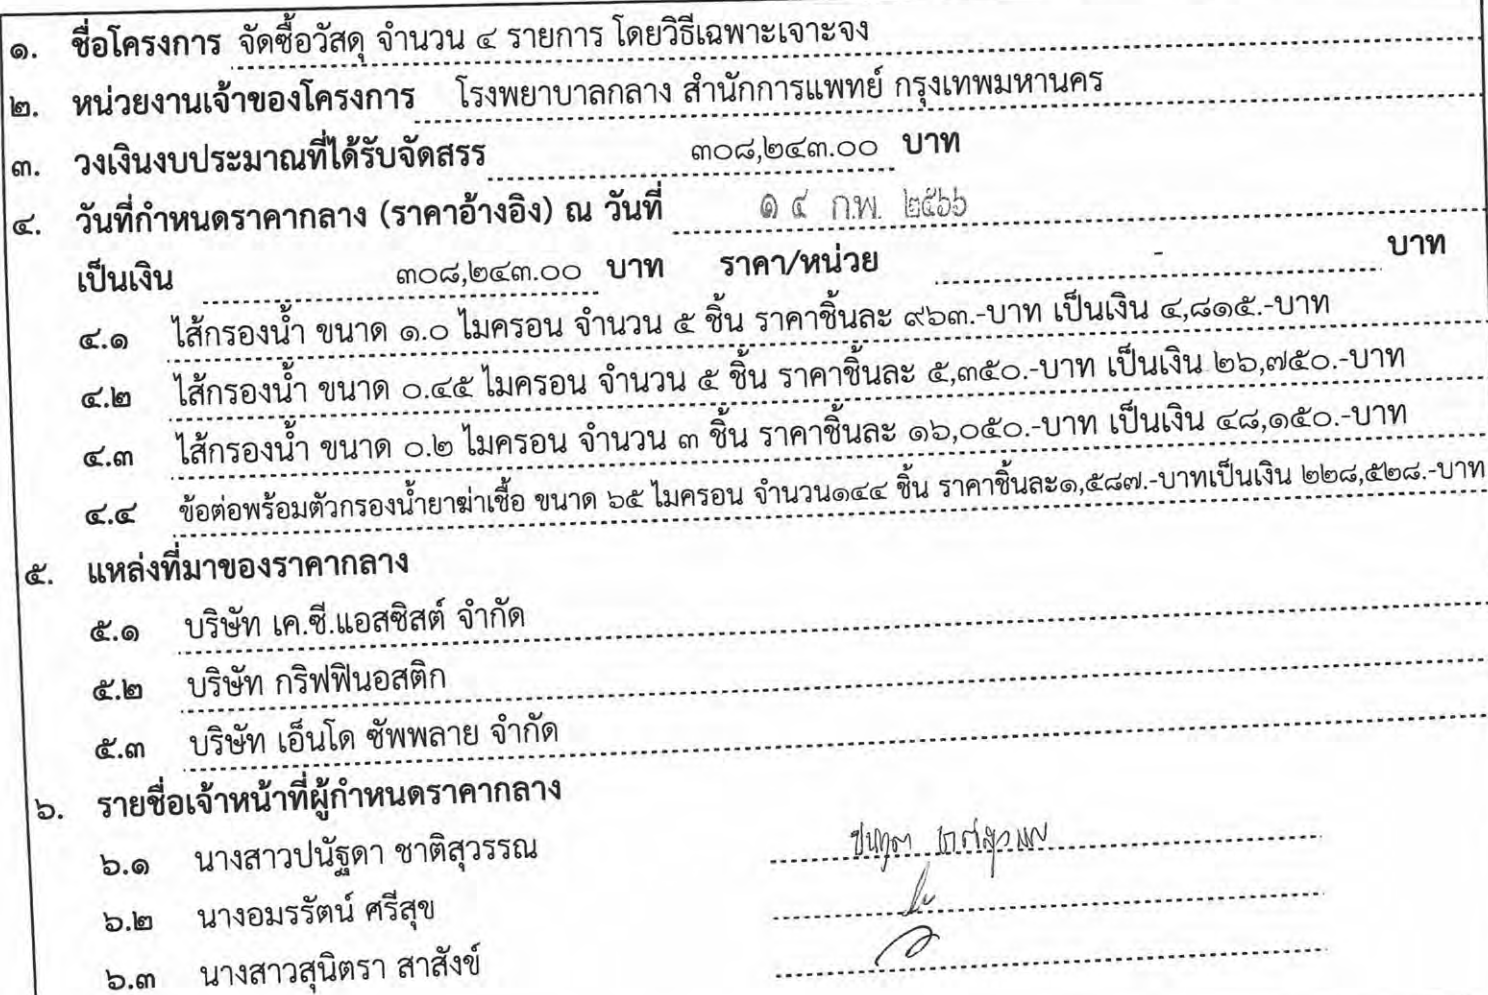 ๑. ชื่อโครงการ จัดซื้อวัสดุ จำนวน ๔ รายการ โดยวิธีเฉพาะเจาะจง
๒. หน่วยงานเจ้าของโครงการ โรงพยาบาลกลาง สำนักการแพทย์ กรุงเทพมหานคร
๓. วงเงินงบประมาณที่ได้รับจัดสรร ๓๐๘,๒๔๓.๐๐ บาท
๔. วันที่กำหนดราคากลาง (ราคาอ้างอิง) ณ วันที่ ๑ ๔ ก.พ. ๒๕๖๖
เป็นเงิน ๓๐๘,๒๔๓.๐๐ บาท ราคา/หน่วย - บาท
๔.๑ ไส้กรองน้ำ ขนาด ๑.๐ ไมครอน จำนวน ๕ ชิ้น ราคาชิ้นละ ๙๖๓.-บาท เป็นเงิน ๔,๘๑๕.-บาท
๔.๒ ไส้กรองน้ำ ขนาด ๐.๔๕ ไมครอน จำนวน ๕ ชิ้น ราคาชิ้นละ ๕,๓๕๐.-บาท เป็นเงิน ๒๖,๗๕๐.-บาท
๔.๓ ไส้กรองน้ำ ขนาด ๐.๒ ไมครอน จำนวน ๓ ชิ้น ราคาชิ้นละ ๑๖,๐๕๐.-บาท เป็นเงิน ๔๘,๑๕๐.-บาท
๔.๔ ข้อต่อพร้อมตัวกรองน้ำยาฆ่าเชื้อ ขนาด ๖๕ ไมครอน จำนวน๑๔๔ ชิ้น ราคาชิ้นละ๑,๕๘๗.-บาทเป็นเงิน ๒๒๘,๕๒๘.-บาท
๕. แหล่งที่มาของราคากลาง
๕.๑ บริษัท เค.ซี.แอสซิสต์ จำกัด
๕.๒ บริษัท กริฟฟินอสติก
๕.๓ บริษัท เอ็นโด ซัพพลาย จำกัด
๖. รายชื่อเจ้าหน้าที่ผู้กำหนดราคากลาง
๖.๑ นางสาวปนัฐดา ชาติสุวรรณ
๖.๒ นางอมรรัตน์ ศรีสุข
๖.๓ นางสาวสุนิตรา สาสังข์